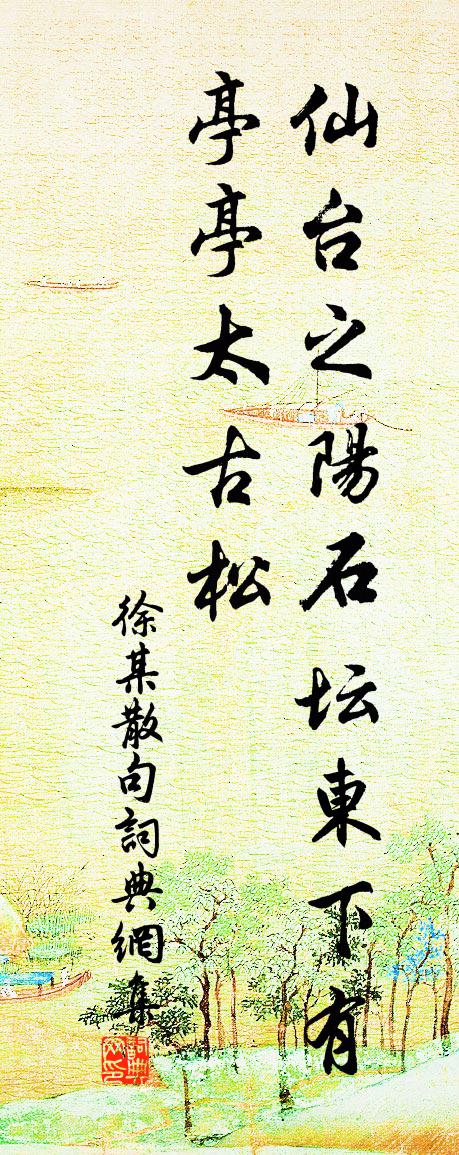 仙台之陽石坛東下有
亭亭太古松
徐某散句詞典網集